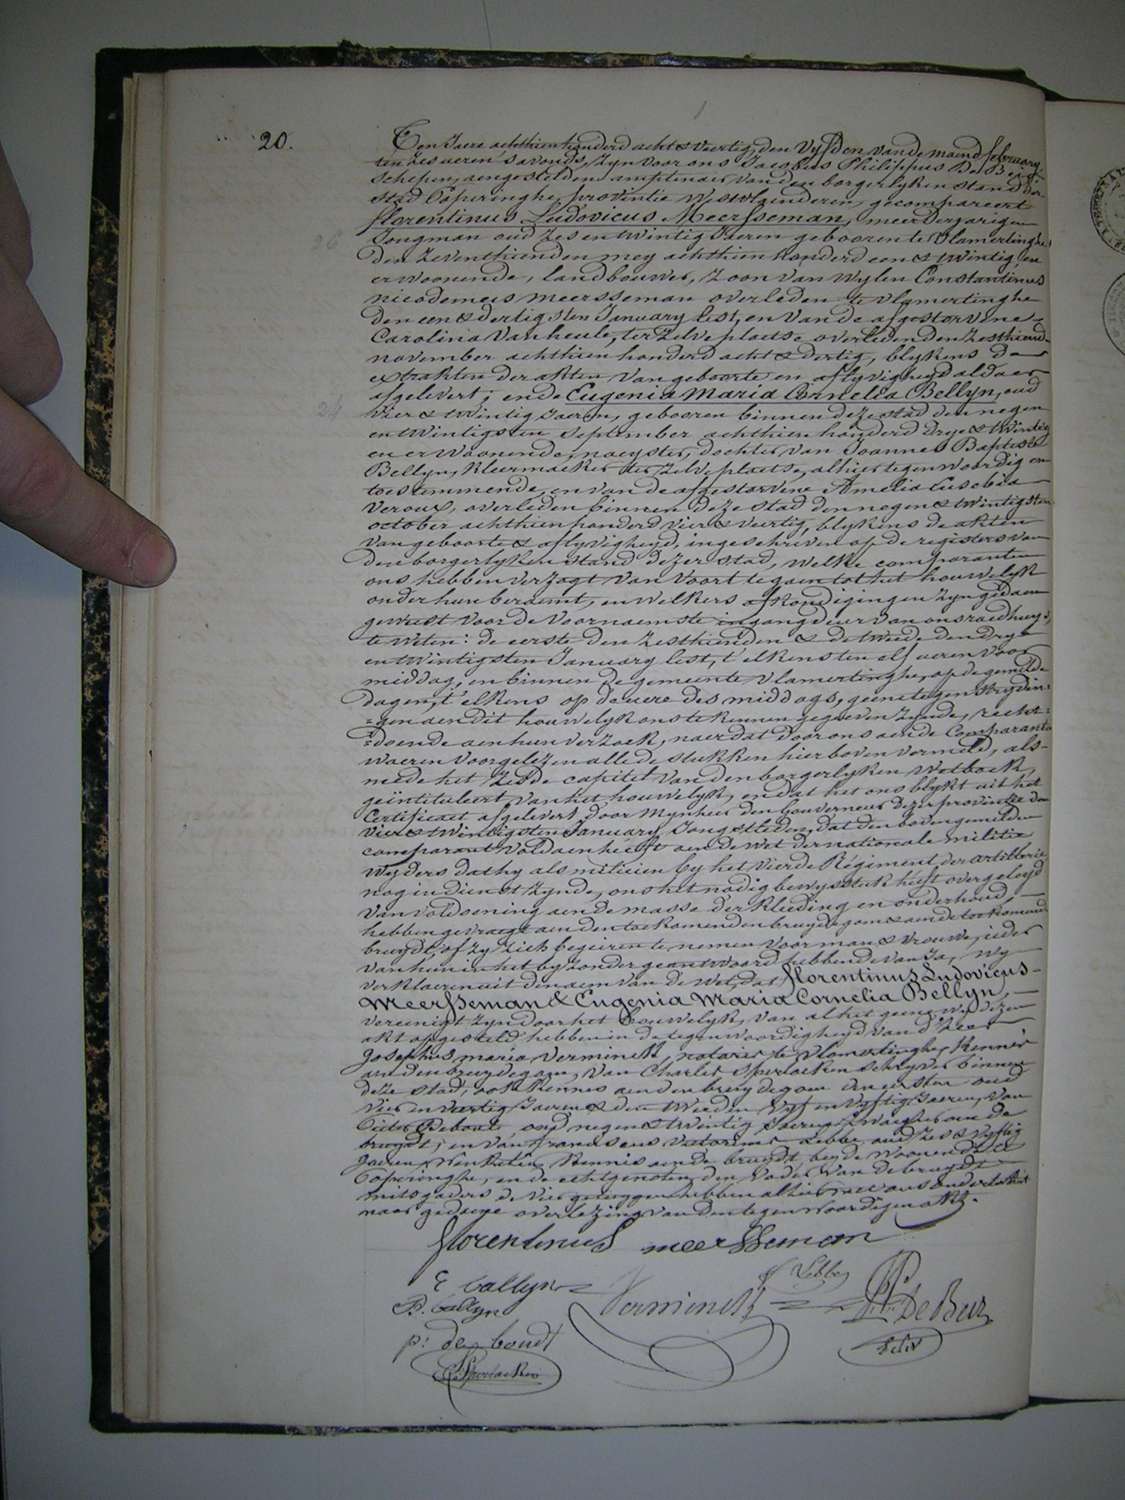 20.
Ten Jaere achthien honderd acht & veertig, den vyfden van de maend february
ten zes ueren s'avonds, zyn voor ons Jacobus Philippus De
Schepen, aengestelden amptenaer van den borgerlyken stand der
stad Poperinghe, provintie Westvlaenderen, gecompareert
florentinus Ludovicus Meersseman, meerderjarigen
Jongman oud zes en twintig Jaeren geboren te Vlamertinghe
den zeventhienden mey achthien honderd een & twintig, en
er woonende, landbouwer, zoon van wylen Constantinus
nicodemus meersseman overleden te vlamertinghe
den een & dertigsten January lest, en van de afgestorvene
Carolina Vanheule, ter zelve plaetse overleden den zesthiend
november achthien honderd acht & dertig, blykens de
extrakten der akten van geboorte en aflyvigheyd aldaer
afgelevert; en de Eugenia Maria Cornelia Bellyn, oud
vier & twintig Jaeren, geboren binnen deze stad den negen
en twintigsten september achthien honderd drye & twintig
en er woonende, naeyster, dochter van Joannes Baptiste
Bellyn, kleermaeker ter zelve plaetse, alhier tegenwoordig en
toestemmende, en van de afgestorvene Amelia Eusebia
Veroux, overleden binnen deze stad den negen & twintigsten
october achthien honderd vier & veertig, blykens de akten
van geboorte & aflyvigheyd, ingeschreven op de registers van
den borgerlyken stand dezer stad, welke comparanten
ons hebben verzogt van voort te gaen tot het houwelyk
onder hun beraemt, en welkers afkondigingen zyn gedaen
geweest voor de voornaemste ingangdeur van ons raedhuys,
te weten: de eerste den zesthienden & de tweede den drye
en twintigsten January lest, t'elkens ten elf ueren voor
middag, en binnen de gemeente vlamertinghe, op de gemelde
dagen, t'elkens op de uere des middags, geene tegenstrydin-
=gen aen dit houwelyk ons te kennen gegeven zynde, recht=
=doende aen hun verzoek, naer dat door ons aen de Comparanten
waeren voorgelezen alle de stukken hier boven vermeld, als-
mede het zesde capitel van den borgerlyken Wetboek,
geïntituleert van het houwelyk, en dat het ons blykt uit het
Certificaet afgelevert door Mynheer den Gouverneur dezer provintie den
vier & twintigsten January Jongstleden, dat den bovengemelden
comparant voldaen heeft aen de wet der nationale militie
wyders dat hy als milicien by het vierde Régiment der artillerie
nog in dienst zynde, ons het nodig bewysstuk heeft overgelegd
van voldoening aen de masse der kleeding en onderhoud,
hebben gevraegt aen den toekomenden bruydegom & aen de toekomende
bruydt, of zy zich begeiren te nemen voor man & vrouwe, ieder
van hun in het byzonder geantwoord hebbende van Ja, Wy
verklaeren uit den naem van de Wet, dat florentinus Ludovicus
Meersseman & Eugenia Maria Cornelia Bellyn,
vereenigt zyn door het houwelyk, van al het geene wy dezen
akt opgesteld hebben in de tegenwoordigheyd van d'heer
Josephus, maria, Verminck, notaris te vlamertinghe, kennis
aen den bruydegom, van Charles Sperlaeken schryver binnen
deze stad, ook kennis aen den bruydegom den eersten oud
vier en veertig Jaeren & den tweeden vyf en vyftig Jaeren, van
oud negen & twintig Jaeren, aen de
bruydt; en van franciscus victorinus Lebbe, oud zes & vyftig
Jaeren, Kennis aen de bruydt, beyde woonende te
Poperinghe, en de echtgenoten, den vader van de bruydt
mitsgaders de vier getuygen hebben alhier met ons onderteekent
naer gedaene overlezing van den tegenwoordigen akt.
florentinus meersseman
E Bellyn
B. Bellyn Verminck f Lebbe De Bur
p: de boudt
C. Sperlaeken